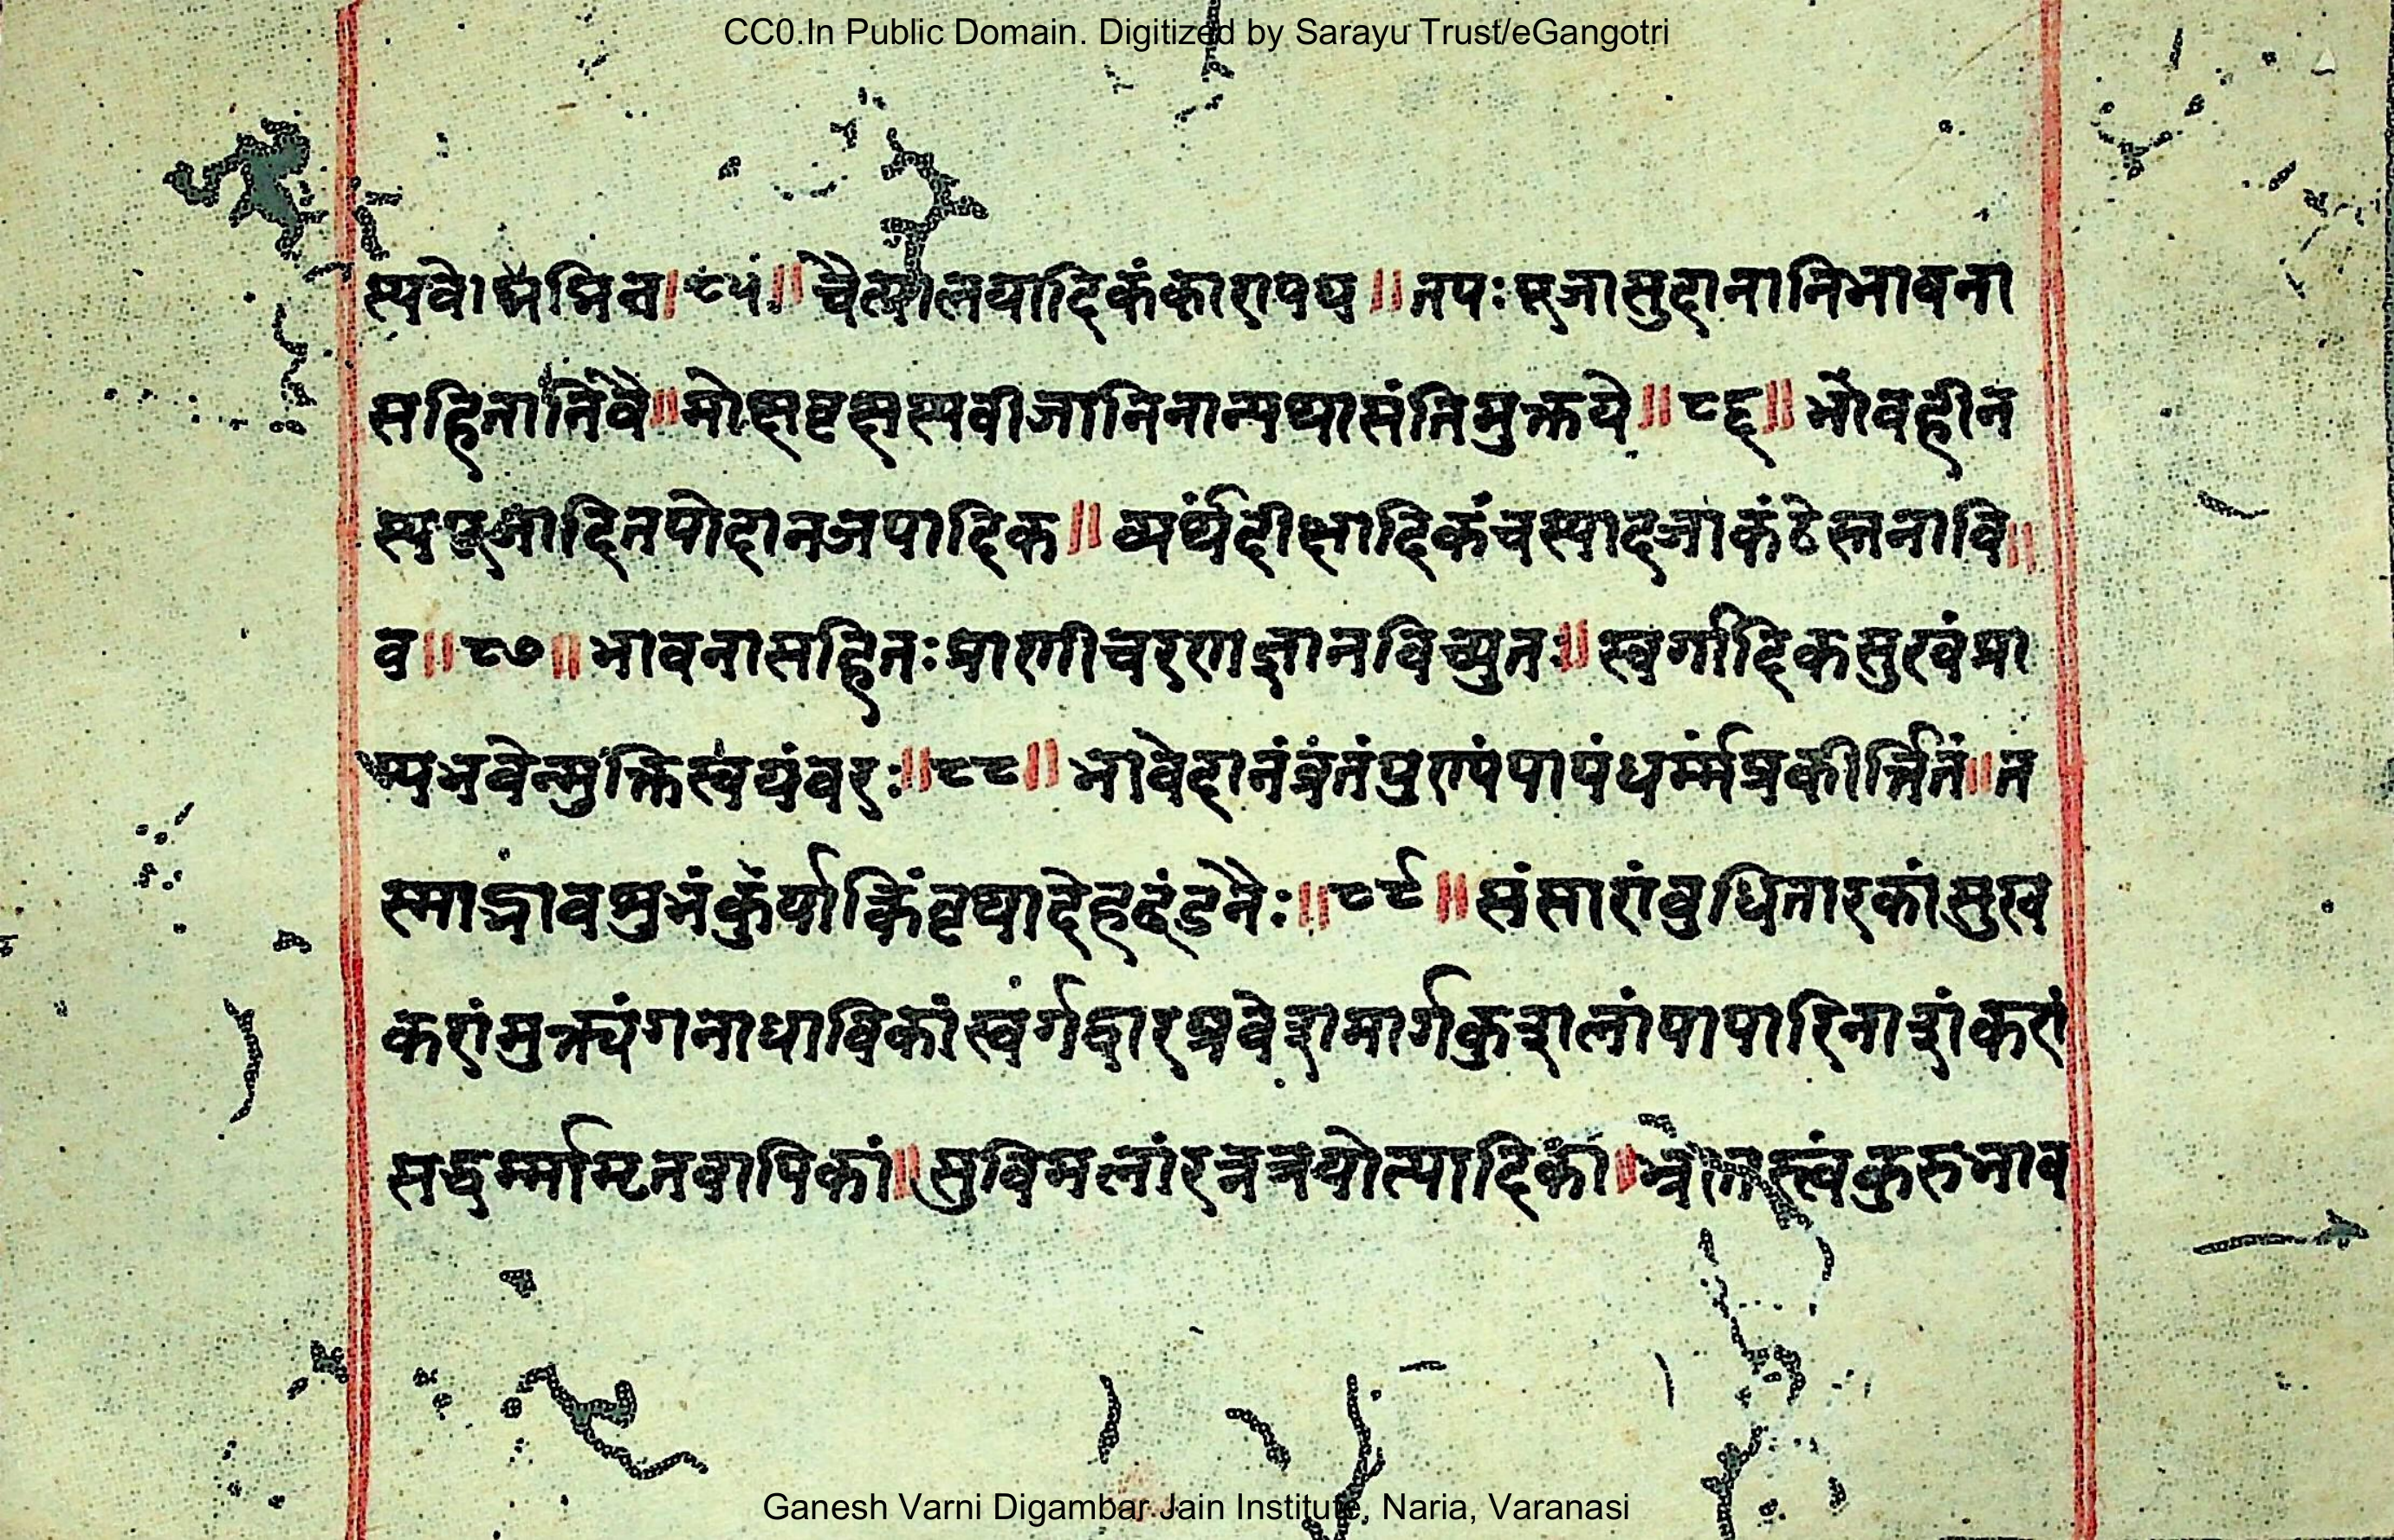 CC0.In Public Domain. Digitized by Sarayu Trust/eGangotri
॥ ८५ ॥ चैत्यालयादिकं कारापयध ॥ तपः पूजासुदानानि भावना
सहितानि वै ॥ मोक्षवृक्षस्य वीजानि नान्यथा संति मुक्तये ॥ ८६ ॥ भावहीन
स्य पूजादि तपोदानजपादिक ॥ व्यर्थं दीक्षादिकं च स्यादजाकंठे स्तनावि ॥
व ॥ ८७ ॥ भावनासहितः प्राणी चरणज्ञानविच्युतः ॥ स्वर्गादिकसुखं प्रा
प्य भवेन्मुक्तिस्वयंवरः ॥ ८८ ॥ भावे दानं व्रतं पुण्यं पापं धर्म्मं प्रकीर्त्तितं ॥ त
स्माद्भावशुभं कुर्या किं वृथा देहदंडनैः ॥ ८९ ॥ संसारांवुधितारकां सुख
करां मुक्त्यंगनाधाविकां स्वर्गद्वारप्रवेशमार्गकुशलां पापारिनाशंकरां
सद्धर्म्मामृतवापिकां ॥ सुविमलां रत्नत्रयोत्पादिकां ॥ कुरु भाव
Ganesh Varni Digambar Jain Institute, Naria, Varanasi